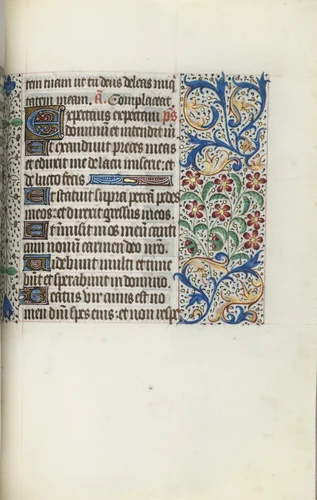 tem meam ne tu deus deleas iniq
tatem meam. a. Complaceat. ps
Expectans expectavi
dominum et intendit m
Et exaudivit preces meas
et eduxit me de lacu miserie: et
de luto fecis.
Et statuit supra petrã pedes
meos: et direxit gressus meos.
Et inmisit in os meũ canti
cum novum carmen deo nro.
Videbunt multi et time
bũt et sperabunt in domino.
Beatus vir cuius est no
men dñi spes eius: et non respe